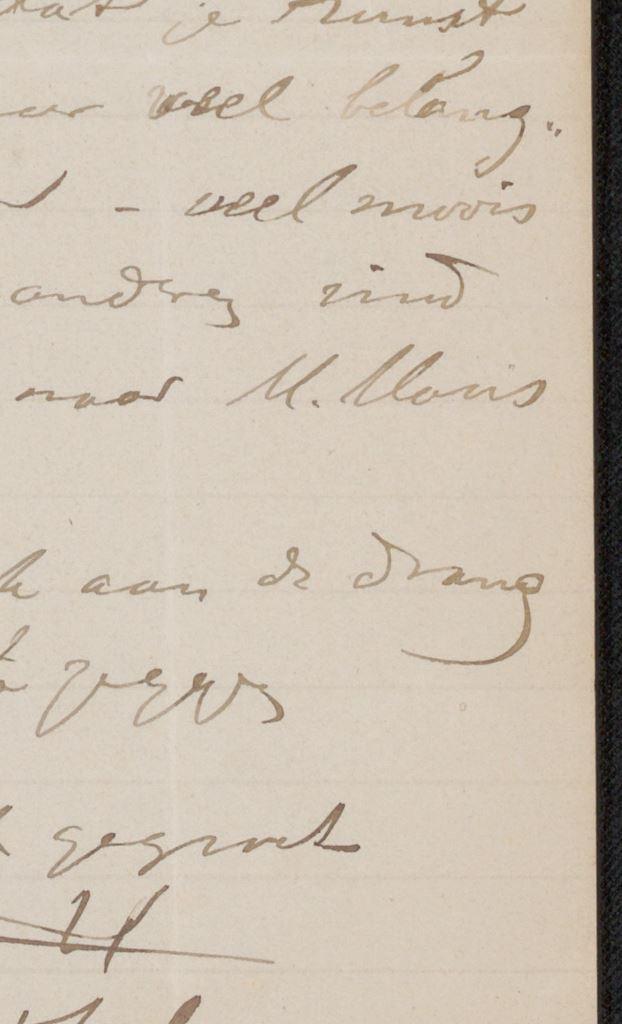 dat je kunst
veel belang„
- veel moois
anderen vind
naar M. Maris
aan de drang
zeggen
gegroet